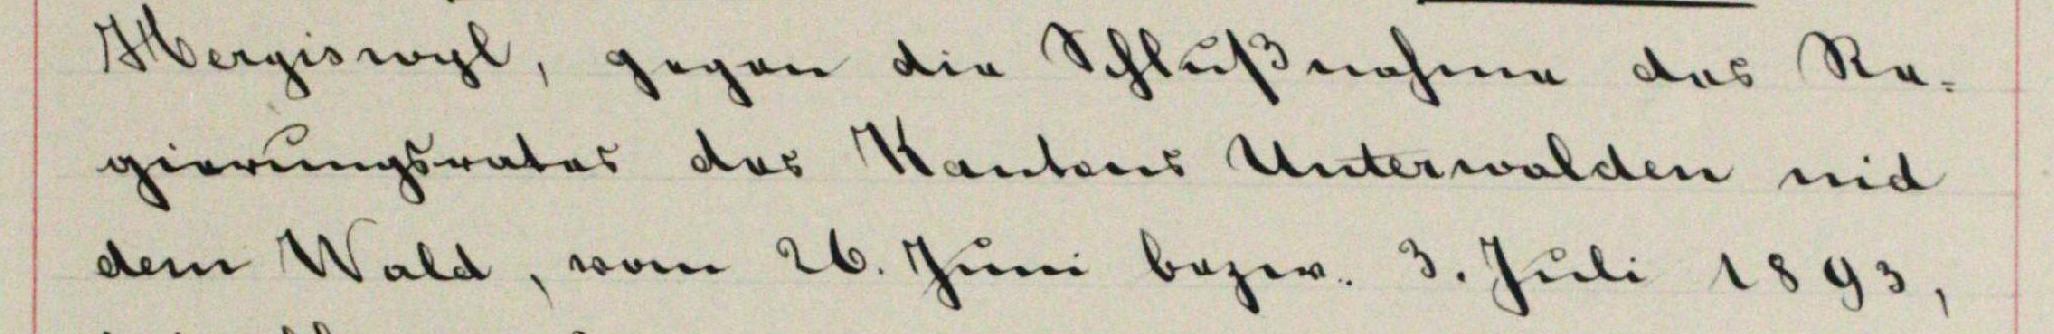 Hergiswyl, gegen die Schlußnahme des Re-
gierungsrates des Kantons Unterwalden nid
dem Wald, vom 26. Juni bezw. 3. Juli 1893,